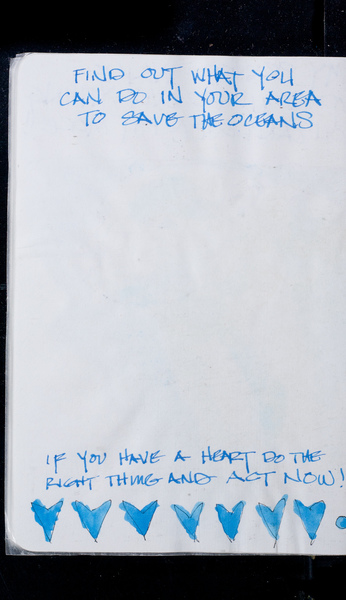 FIND OUT WHAT YOU
CAN DO IN YOUR AREA
TO SAVE THE OCEANS
IF YOU HAVE A HEART DO THE
RIGHT THING AND ACT NOW!